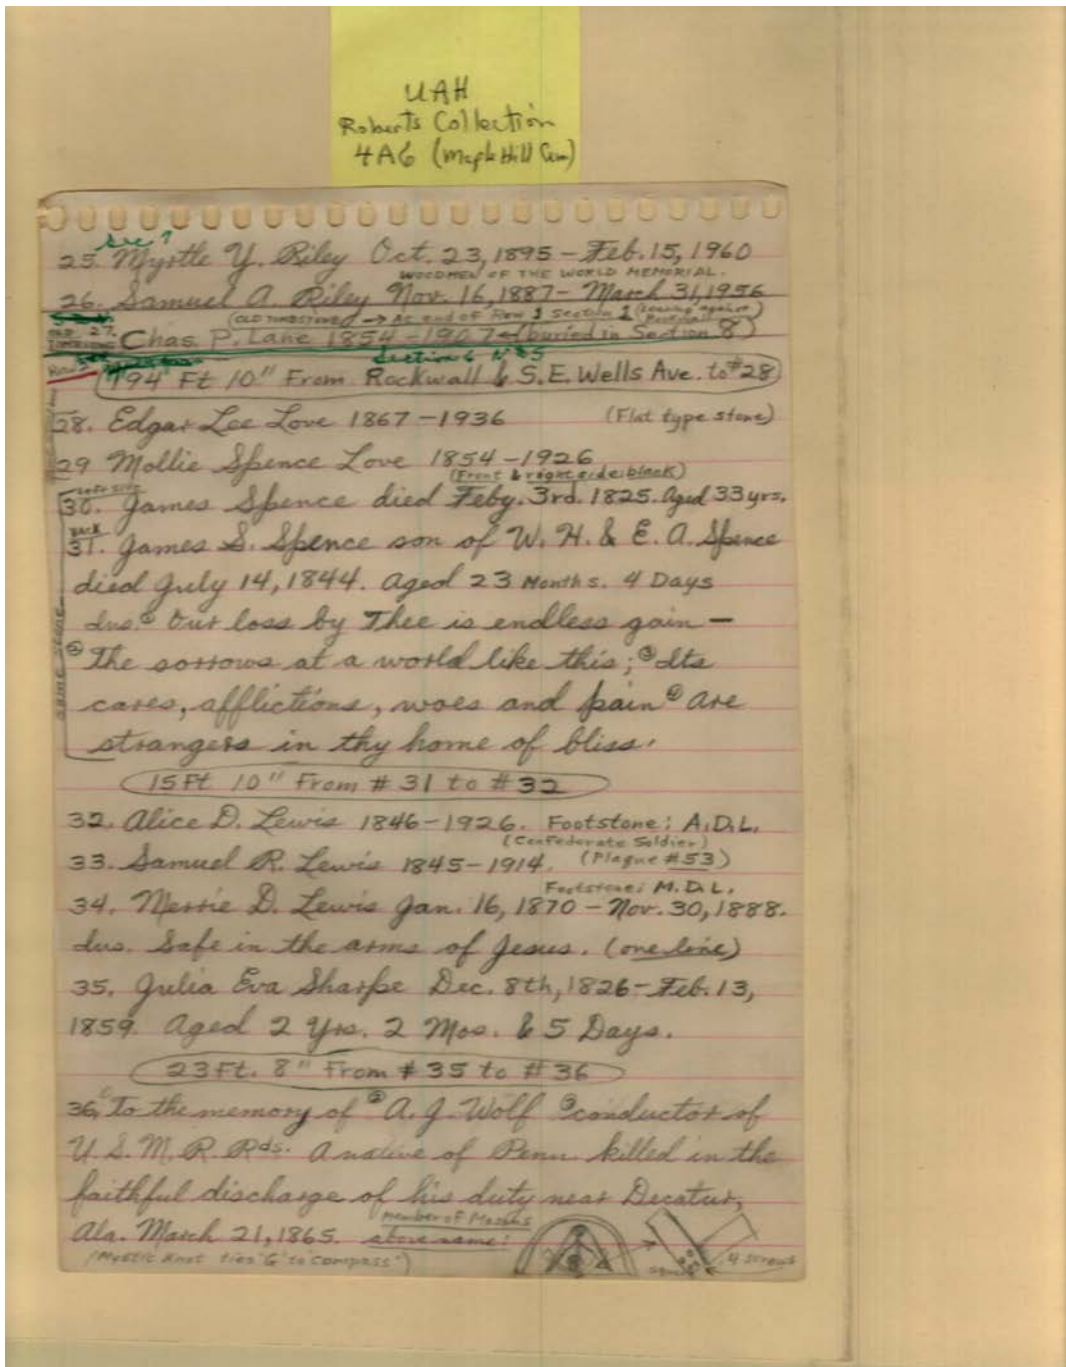 UAH
Roberts Collection
4A6 (Maple Hill Cem)
Sec 7
25. Myrtle Y. Riley Oct. 23, 1895 - Feb. 15, 1960
WOODMEN OF THE WORLD MEMORIAL.
26. Samuel A. Riley Nov. 16, 1887 - March 31, 1956
(OLD TOMBSTONE) → As end of Row 1 section 1 (Leaning against Rockwall)
OLD TOMBSTONE 27. Chas. P. Lane 1854 - 1907 - (buried in Section 8)
Section 6 N
Row
194 Ft 10" From Rockwall & S.E. Wells Ave. to #28
28. Edgar Lee Love 1867 - 1936 (Flat type stone)
29 Mollie Spence Love 1854 - 1926
(Front & right side: black)
30. James Spence died Feby. 3rd. 1825. Aged 33 yrs.
BACK
31. James S. Spence son of W. H. & E. A. Spence
died July 14, 1844. Aged 23 Months. 4 Days
dus. ① Our loss by Thee is endless gain —
② The sorrows at a world like this; ③ Its
cares, afflictions, woes and pain ④ are
strangers in thy home of bliss.
SAME STONE
15 Ft 10" From # 31 to # 32
32. Alice D. Lewis 1846 - 1926. Footstone: A.D.L.
(Confederate Soldier)
33. Samuel R. Lewis 1845 - 1914. (Plaque #53)
Footstone: M.D.L.
34. Merrie D. Lewis Jan. 16, 1870 - Nov. 30, 1888.
dus. Safe in the arms of Jesus. (one line)
35. Julia Eva Sharpe Dec. 8th, 1826 - Feb. 13,
1859. Aged 2 Yrs. 2 Mos. & 5 Days.
23 Ft. 8" From # 35 to # 36
36. To the memory of ② A. J. Wolf ③ conductor of
U. S. M. R. Rds. A native of Penn. killed in the
faithful discharge of his duty near Decatur,
Ala. March 21, 1865. member of Masons above name:
(Mystic Knot ties "G" to compass") 4 screws